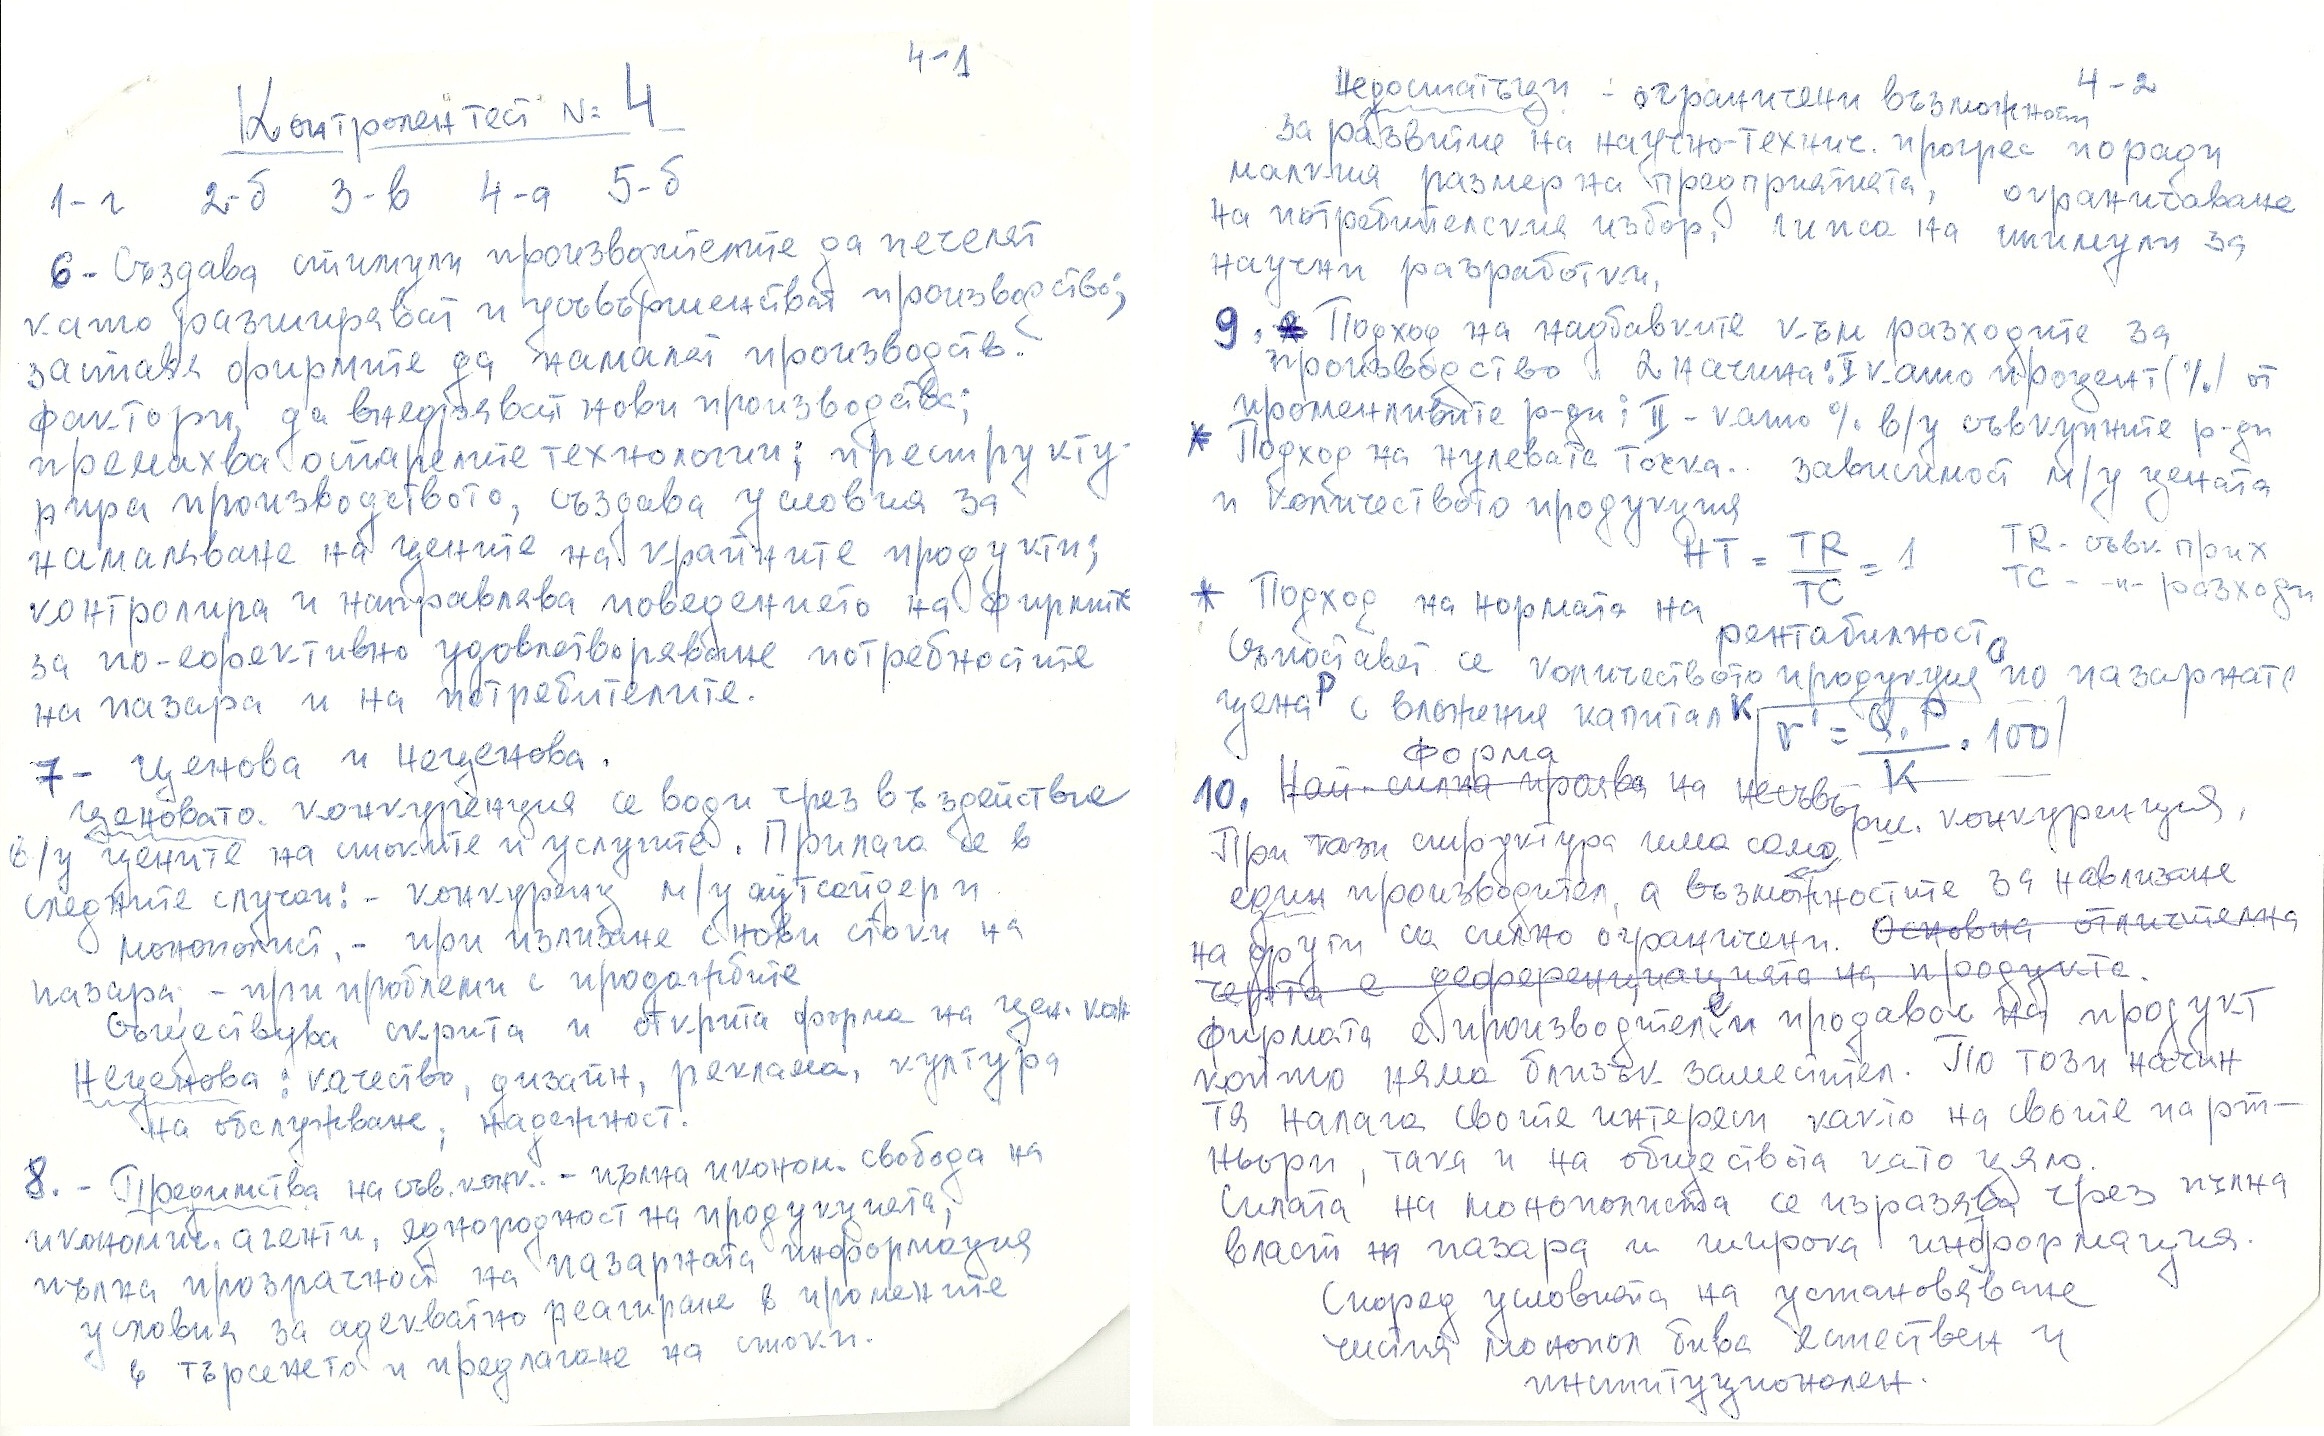 4-1
Контролен тест №: 4
1-г 2-б 3-в 4-а 5-б
6- Създава стимули производителите да печелят
като разширяват и усъвършенстват производство;
заставя фирмите да намалят производств.
фактори, да внедряват нови производства;
премахва остарелите технологии; преструкту-
рира производството, създава условия за
намаляване на цените на крайните продукти;
контролира и направлява поведението на фирмите
за по-ефективно удовлетворяване потребностите
на пазара и на потребителите.
7- Ценова и неценова.
Ценовата конкуренция се води чрез въздействие
в/у цените на стоките и услугите. Прилага се в
следните случаи: - конкуренц м/у аутсайдери
монополист, - при излизане с нови стоки на
пазара; - при проблеми с продажбите
Съществува скрита и открита форма на цен. кон
Неценова: качество, дизайн, реклама, култура
на обслужване, надежност.
8. - Предимства на съв. конк. - пълна иконом. свобода на
икономич. агенти, еднородност на продукцията,
пълна прозрачност на пазарната информация
условия за адекватно реагиране в промените
в търсенето и предлагане на стоки.
4-2
Недостатъци - ограничени възможности
за развитие на научно-технич. прогрес поради
малкия размер на предприятията, ограничаване
на потребителския избор, липса на стимули за
научни разработки.
9. * Подход на надбавките към разходите за
производство 2 начина: I като процент (%) от
променливите р-ди; II - като % в/у съвкупните р-ди
* Подход на нулевата точка.. зависимост м/у цената
и количеството продукция
НТ = TR/TC = 1 TR - съвк. прих
TC - -"- разходи
* Подход на нормата на
рентабилност
Съпоставят се количеството продукция Q по пазарната
цена P с вложения капитал K r' = Q.P/K . 100
форма
10. Най-силна проява на несъвърш. конкуренция,
При тази структура има само
един производител, а възможностите за навлизане
на други са силно ограничени. Основна отличителна
черта е деференциацията на продукта.
фирмата е производител и продавач на продукт
който няма близък заместител. По този начин
тя налага своите интереси както на своите парт-
ньори, така и на обществота като цяло.
Силата на монополиста се изразява чрез пълна
власт на пазара и широка информация.
Според условията на установяване
чистия монопол бива естествен и
институционален.